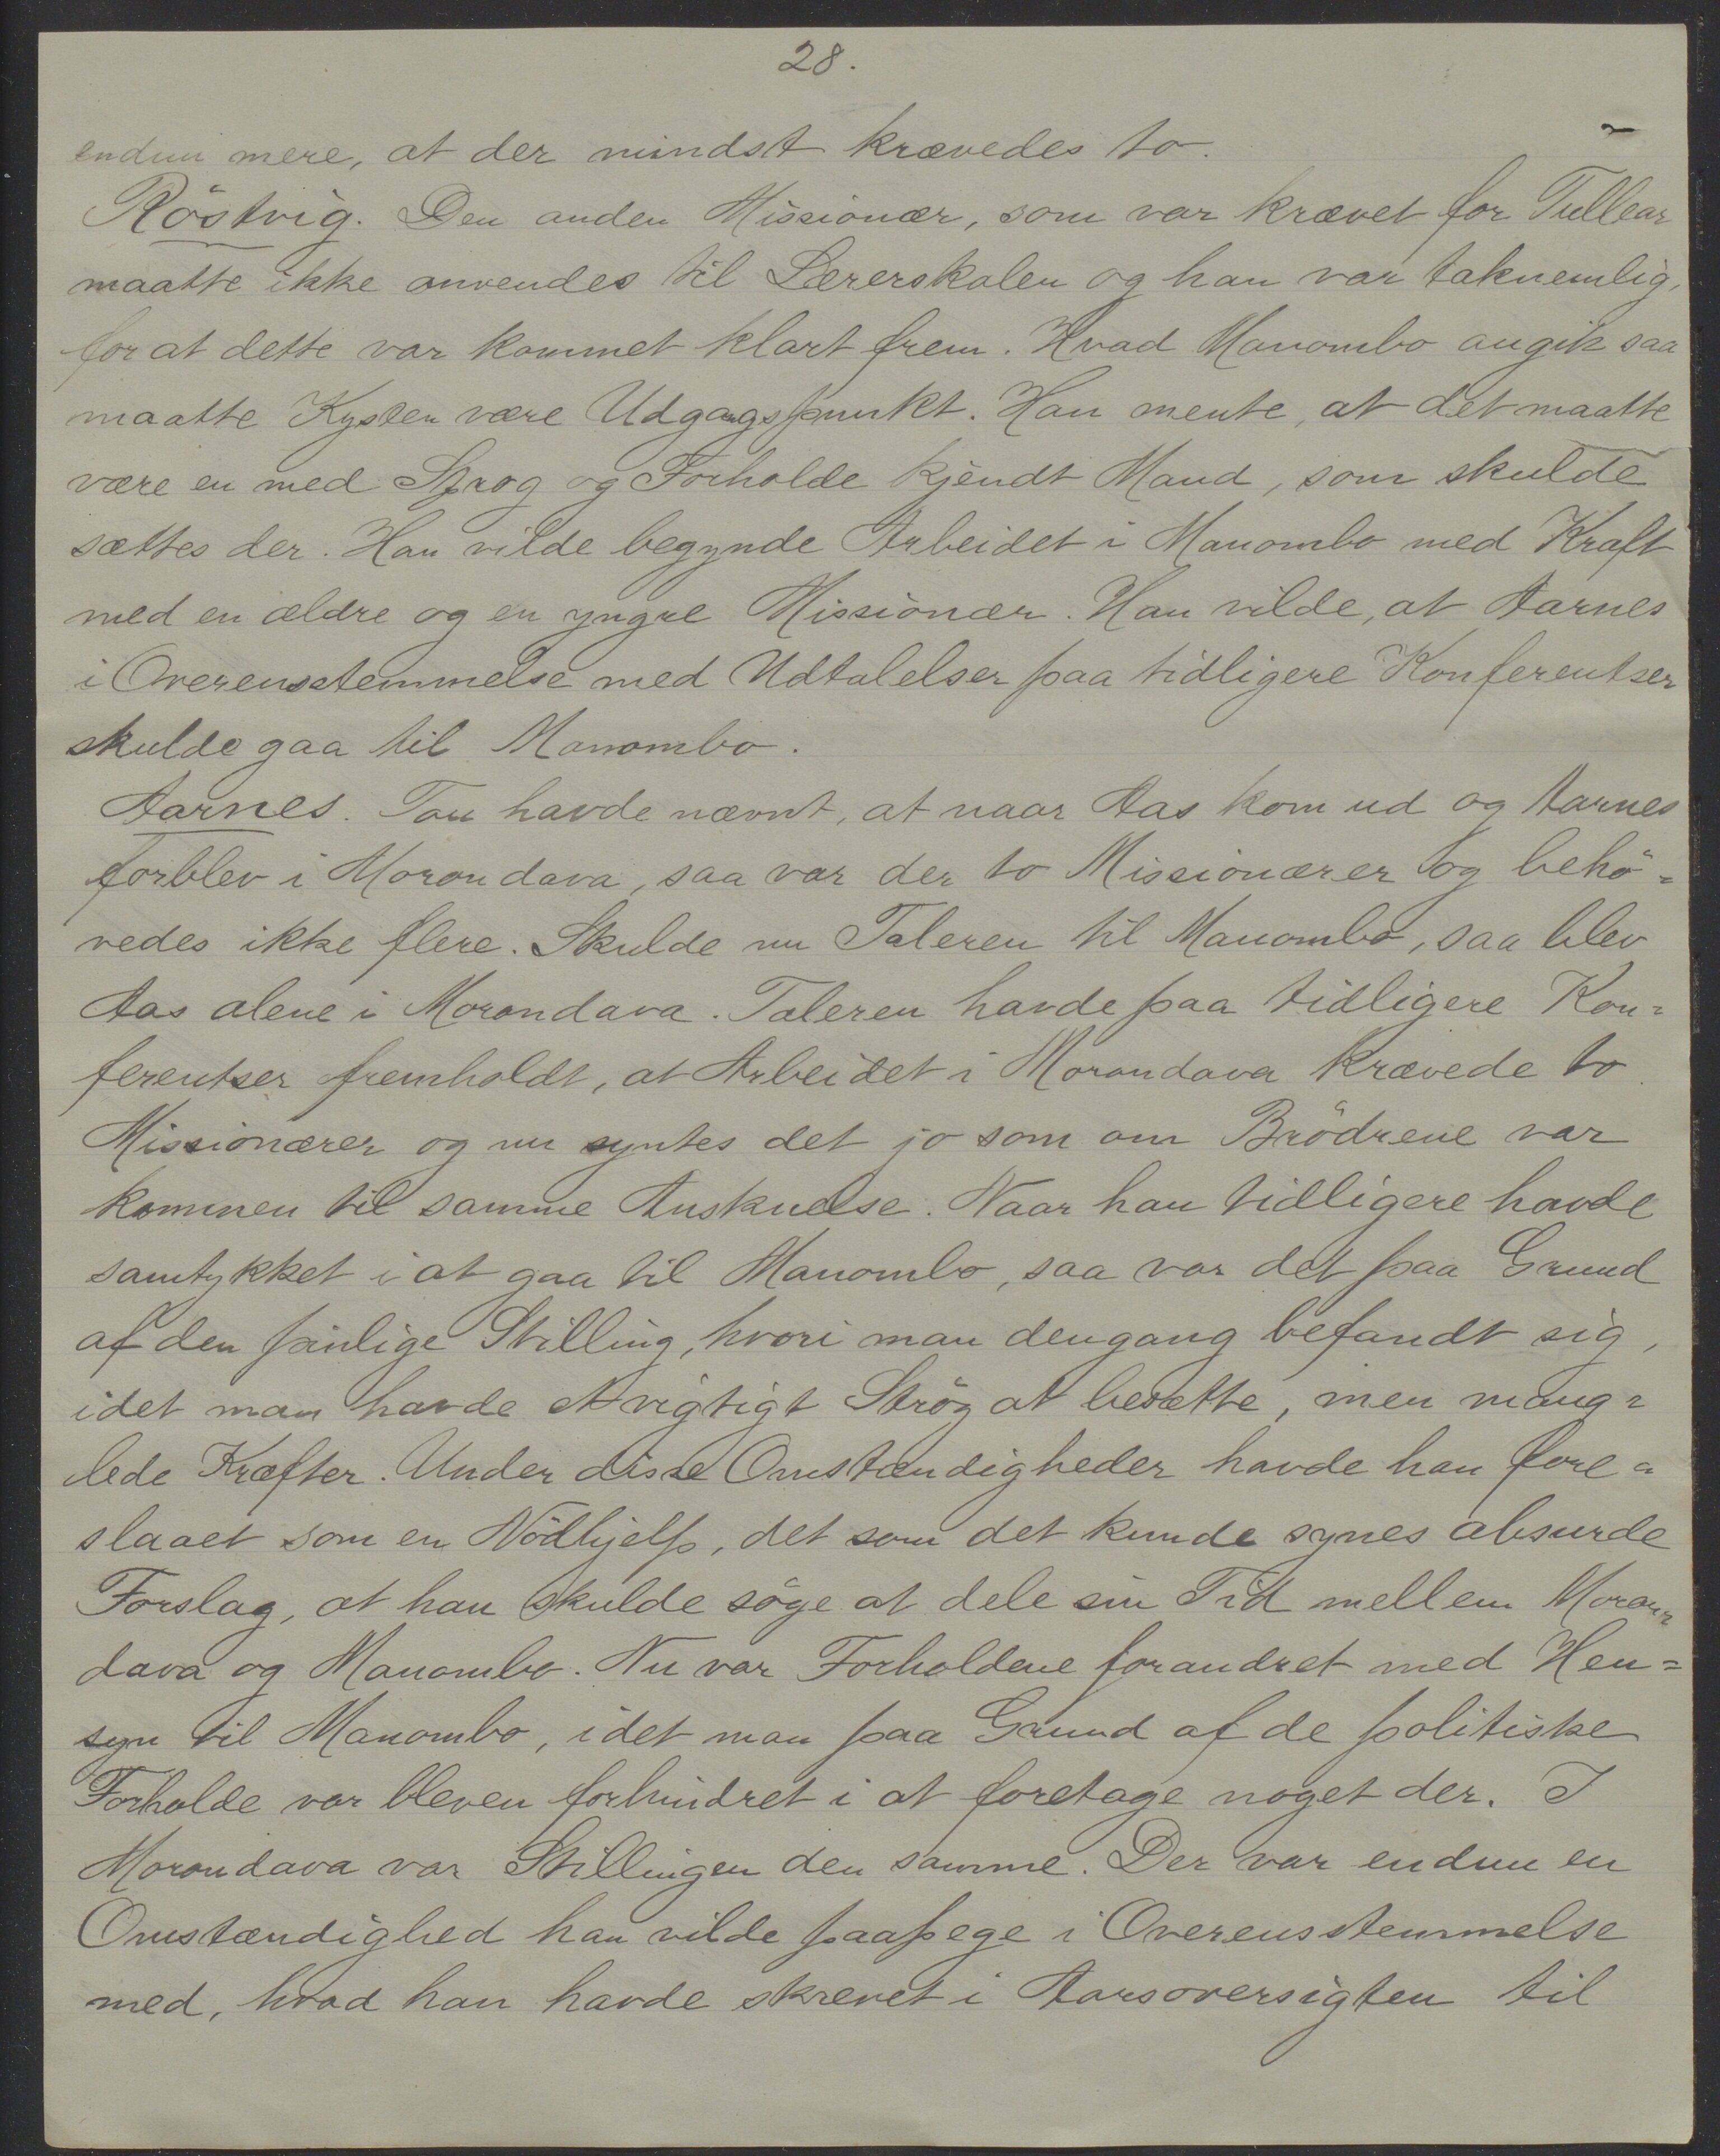 28.
endnu mere, at der mindst krævedes to.
Röstvig. Den anden Missionær, som var krævet for Tullear
maatte ikke anvendes til Lærerskolen og han var taknemlig,
for at dette var kommet klart frem. Hvad Manombo angik saa
maatte Kysten være Udgangspunkt. Han mente, at det maatte
være en med Sprog og Forholde kjendt Mand, som skulde
sættes der. Han vilde begynde Arbeidet i Manombo med Kraft
med en ældre og en yngre Missionær. Han vilde, at Aarnes
i Overensstemmelse med Udtalelser paa tidligere Konferentser
skulde gaa til Manombo.
Aarnes. Tou havde nævnt, at naar Aas kom ud og Aarnes
forblev i Morondava, saa var der to Missionærer og behö=
vedes ikke flere. Skulde nu Taleren til Manombo, saa blev
Aas alene i Morondava. Taleren havde paa tidligere Kon=
ferentser fremholdt, at Arbeidet i Morondava krævede to
Missionærer og nu syntes det jo som om Brödrene var
kommen til samme Anskuelse. Naar han tidligere havde
samtykket i at gaa til Manombo, saa var det paa Grund
af den pinlige Stilling, hvori man dengang befandt sig,
idet man havde et vigtigt Strög at besætte, men mang=
lede Kræfter. Under disse Omstændigheder havde han fore=
slaaet som en Nödhjelp, det som det kunde synes absurde
Forslag, at han skulde söge at dele sin Tid mellem Moron=
dava og Manombo. Nu var Forholdene forandret med Hen=
syn til Manombo, idet man paa Grund af de politiske
Forholde var bleven forhindret i at foretage noget der. I
Morondava var Stillingen den samme. Der var endnu en
Omstændighed han vilde paapege i Overensstemmelse
med, hvad han havde skrevet i Aarsoversigten til